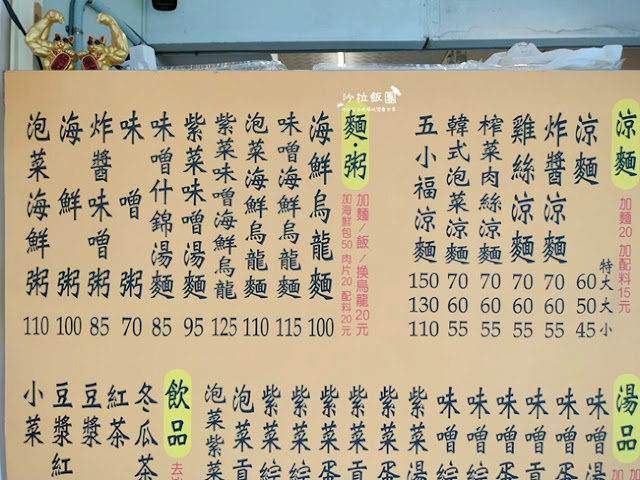 沙拉飯團
涼麵
加麵20 加配料15元
特大 大 小
涼麵 60 50 45
炸醬涼麵 70 60 55
雞絲涼麵 70 60 55
榨菜肉絲涼麵 70 60 55
韓式泡菜涼麵 70 60 55
五小福涼麵 150 130 110
麵・粥
加麵/飯/換烏龍20元
加海鮮包50 肉片20 配料20元
海鮮烏龍麵 100
味噌海鮮烏龍麵 115
泡菜海鮮烏龍麵 110
紫菜味噌海鮮烏龍 125
紫菜味噌湯麵 95
味噌什錦湯麵 85
味噌粥 70
炸醬味噌粥 85
海鮮粥 100
泡菜海鮮粥 110
湯品
加 加
味噌
味噌
味噌蛋
味噌貢
味噌綜
味噌湯
紫菜湯
紫菜蛋
紫菜
紫菜蛋
紫菜貢
紫菜綜
泡菜貢
泡菜紫菜
飲品
去
冬瓜茶
紅茶
豆漿
豆漿紅
小菜